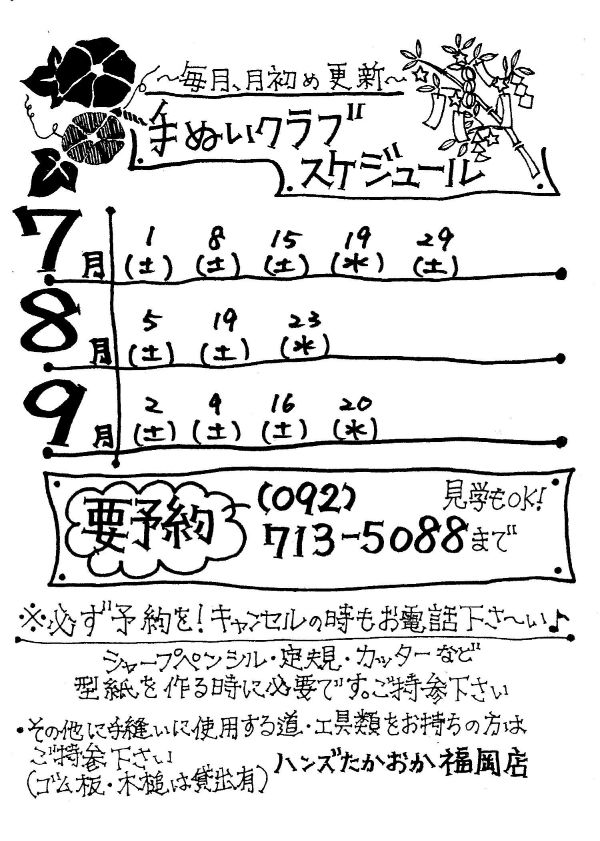 ～毎月、月初め更新～
手ぬいクラブ
スケジュール
7月 1(土) 8(土) 15(土) 19(水) 29(土)
8月 5(土) 19(土) 23(水)
9月 2(土) 9(土) 16(土) 20(水)
要予約 (092) 見学もOK!
713-5088まで
※必ず予約を!キャンセルの時もお電話下さ～い♪
シャープペンシル・定規・カッターなど
型紙を作る時に必要です。ご持参下さい
・その他に手縫いに使用する道・工具類をお持ちの方は
ご持参下さい
(ゴム板・木槌は貸出有) ハンズたかおか福岡店